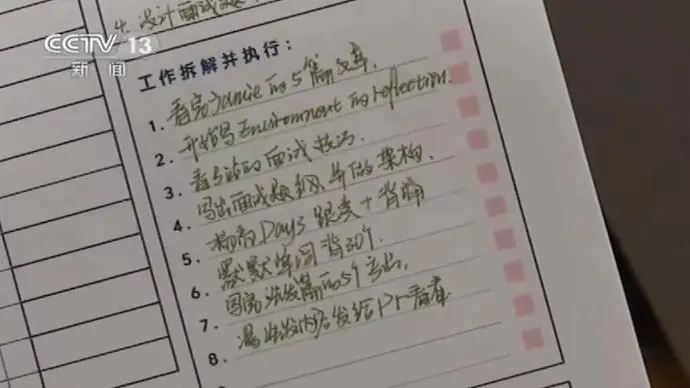 5. 设计面试题
CCTV 13
新闻
工作拆解并执行:
1. 看完Jamie的5篇文章.
2. 开始写Environment的reflection.
3. 看的面试技巧.
4. 写出面试题纲,并做架构.
5. Day3 跟读+背诵
6. 默默单词背30个.
7. 写完的5个
8. 内容发给Pr看看